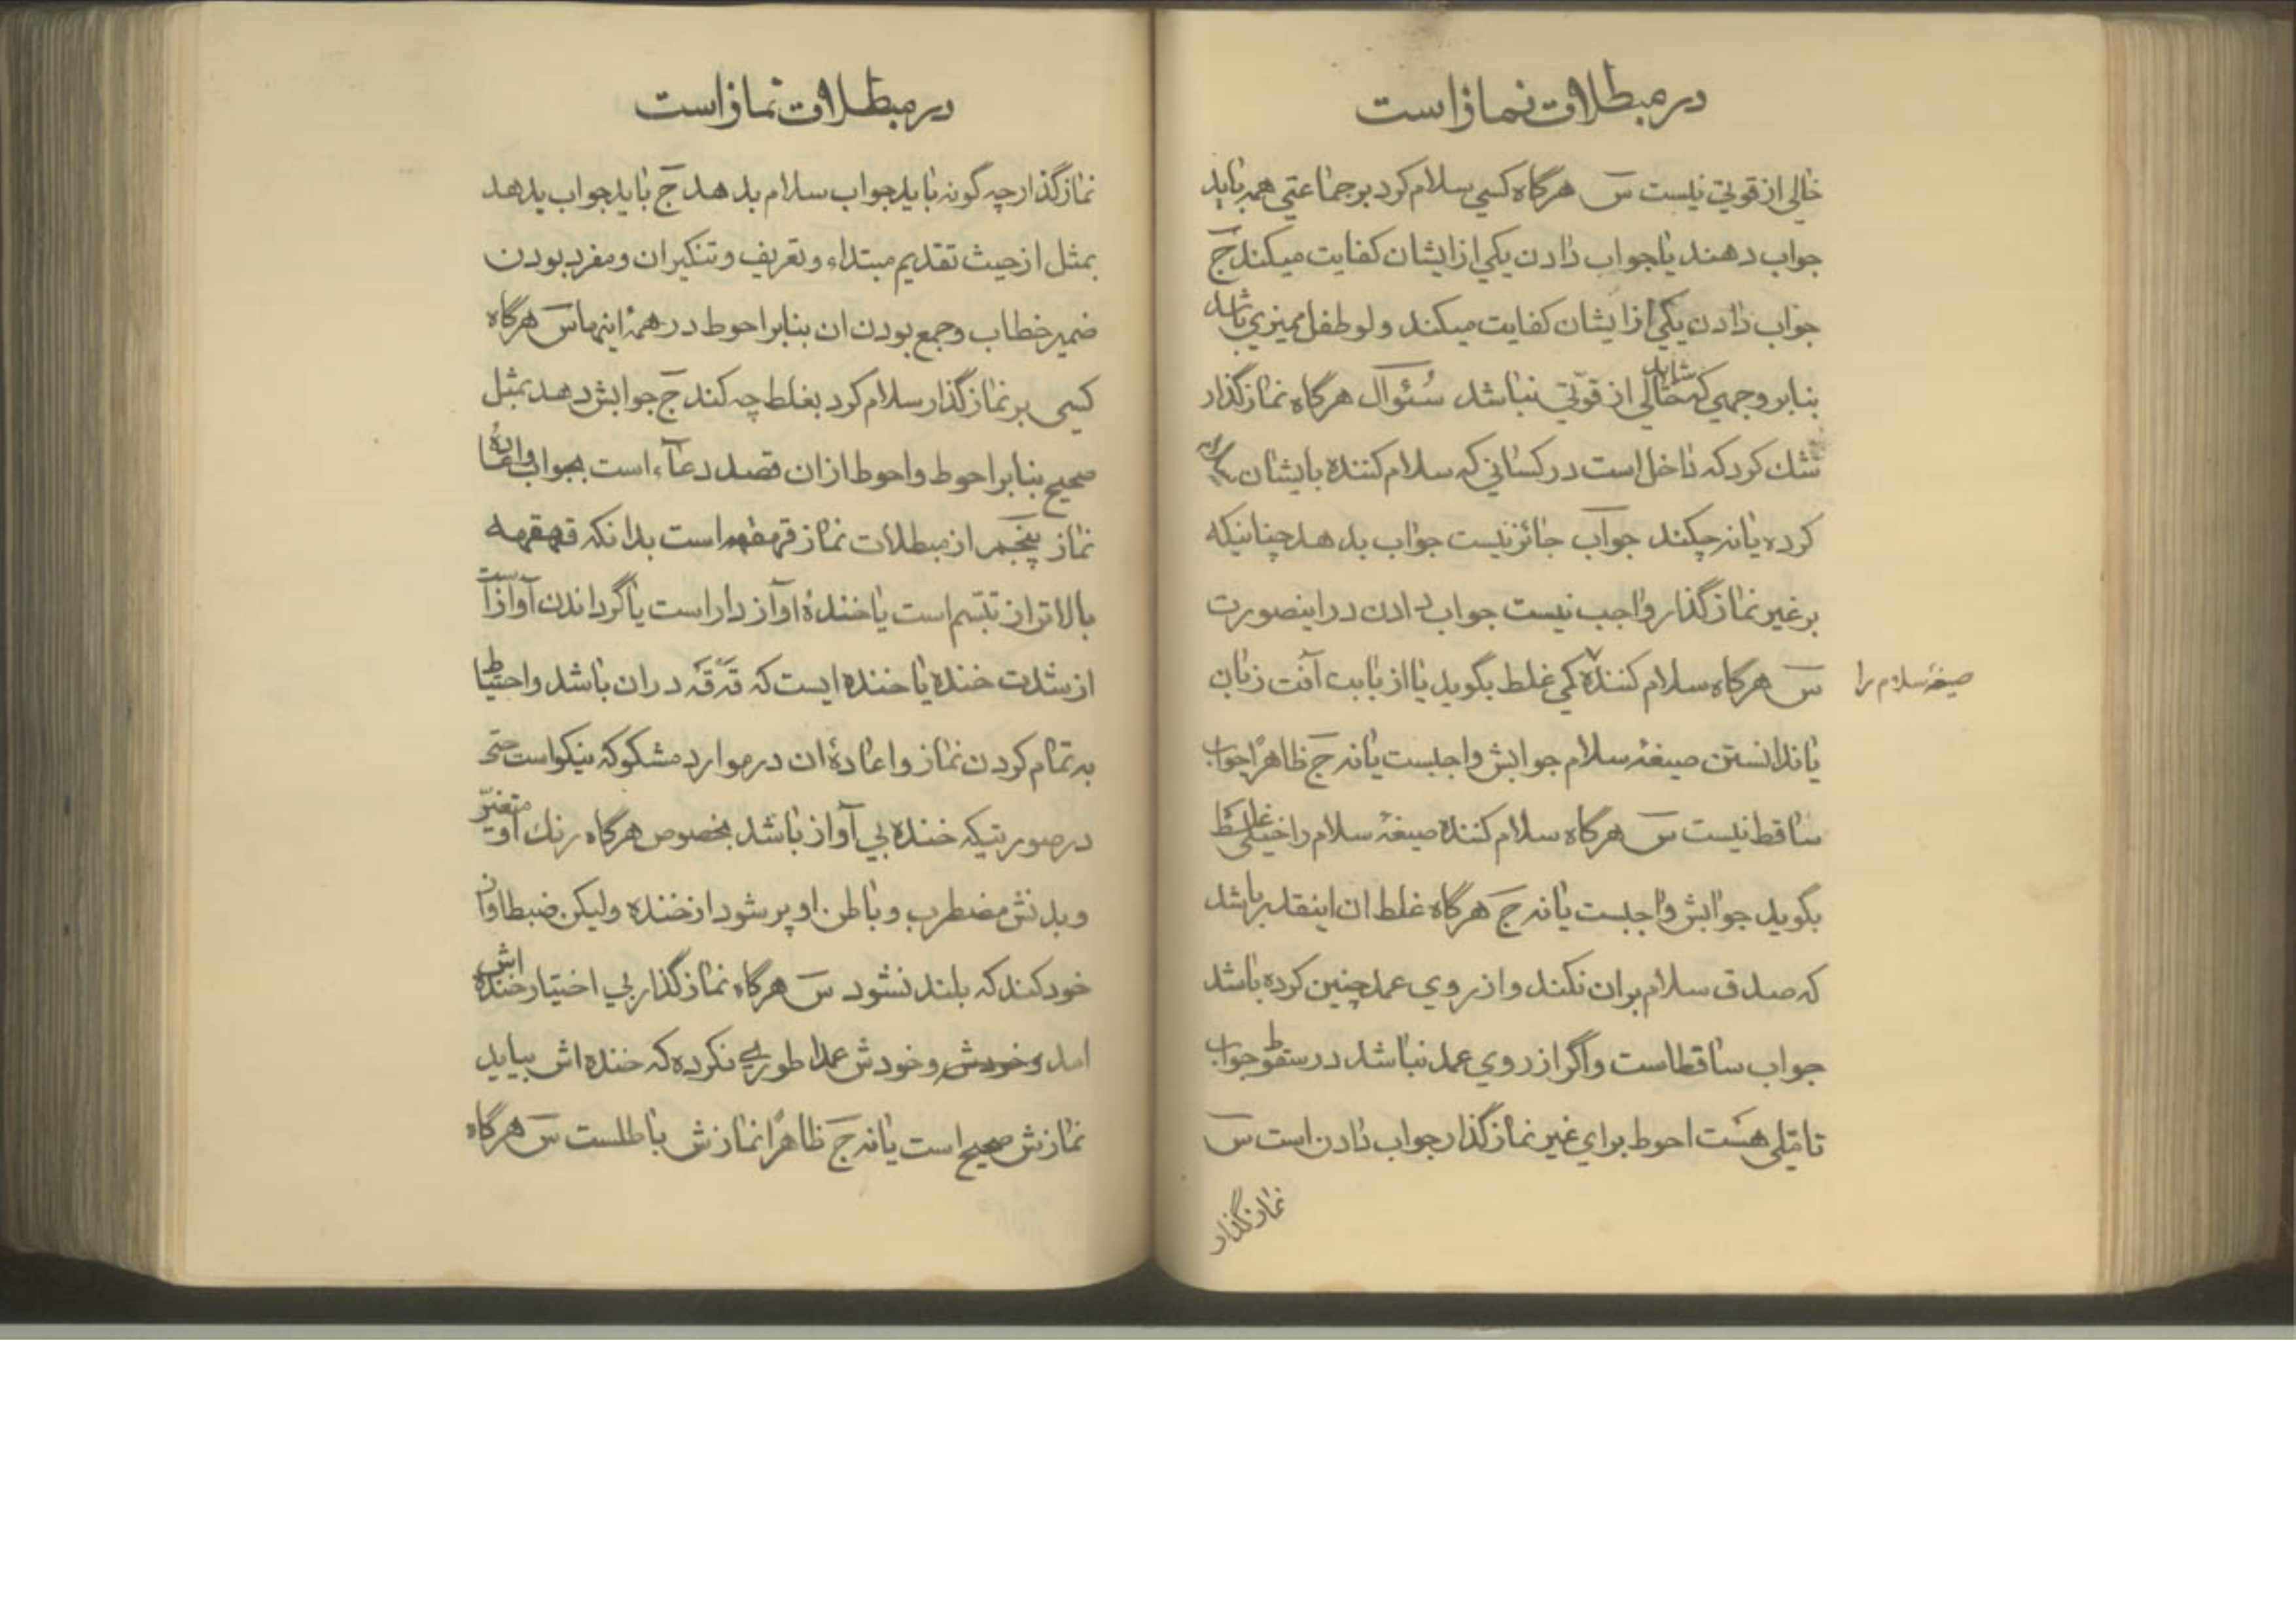 در مبطلات نماز است
خالی از قوتی نیست س هرگاه کسی سلام کرد بر جماعتی همه باید
جواب دهند یا جواب دادن یکی از ایشان کفایت میکند ج
جواب دادن یکی از ایشان کفایت میکند ولو طفل ممیزی باشد
بنابر وجهی که شاید خالی از قوتی نباشد سئوال هرگاه نمازگذار
شك کرد که داخل است در کسانی که سلام کننده بایشان سلام
کرده یا نه چکند جواب جائز نیست جواب بدهد چنانیکه
بر غیر نمازگذار واجب نیست جواب دادن در اینصورت
س هرگاه سلام کننده کمی غلط بگوید یا از بابت آفت زبان
صیغهٔ سلام را
یا ندانستن صیغهٔ سلام جوابش واجبست یا نه ج ظاهرًا جواب
ساقط نیست س هرگاه سلام کننده صیغهٔ سلام را خیلی غلط
بگوید جوابش واجبست یا نه ج هرگاه غلط ان اینقدر باشد
که صدق سلام بران نکند و از روی عمد چنین کرده باشد
جواب ساقط است و اگر از روی عمد نباشد در سقوط جواب
تاملی هست احوط برای غیر نمازگذار جواب دادن است س
نمازگذار
در مبطلات نماز است
نمازگذار چه گونه باید جواب سلام بدهد ج باید جواب بدهد
بمثل از حیث تقدیم مبتداء و تعریف و تنکیر ان و مفرد بودن
ضمیر خطاب و جمع بودن ان بنابر احوط در همهٔ اینها س هرگاه
کسی بر نمازگذار سلام کرد بغلط چه کند ج جوابش دهد بمثل
صحیح بنابر احوط و احوط از ان قصد دعآء است بجواب و اعادهٔ
نماز پنجم از مبطلات نماز قهقهه است بدانکه قهقهه
بالاتر از تبسّم است یا خندهٔ اوآز دار است یا گرداندن آواز است
از شدت خنده یا خنده ایست که قَه قَه دران باشد و احتیاط
به تمام کردن نماز و اعادهٔ ان در موارد مشکوکه نیکو است حتی
در صورتیکه خنده بی آواز باشد بخصوص هرگاه رنك او متغیّر
و بدنش مضطرب و باطن او پر شود از خنده ولیکن ضبط اوآز
خود کند که بلند نشود س هرگاه نمازگذار بی اختیار خنده اش
امد وخودش و خودش عمدا طوریی نکرده که خنده اش بیاید
نمازش صحیح است یا نه ج ظاهرًا نمازش باطلست س هرگاه